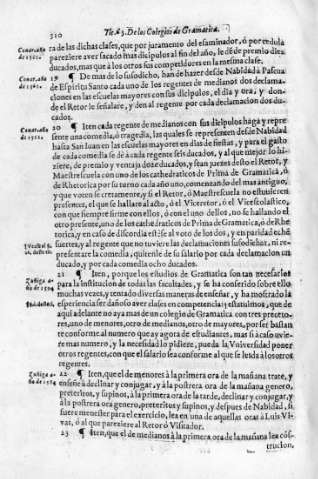 310 Tit. 63. De los Colegios de Gramatica.
ra de las dichas clases, que por juramento del esaminador, ò por cedula
pareziere aver sacado mas dicipulos al fin del año, le dè de premio diez
ducados, mas que à los otros sus competidores en la mesma clase.
19 ¶ De mas de lo susodicho, han de hazer desde Nabidad à Pascua
de Espiritu Santo cada uno de los regentes de medianos dos declama-
ciones en las escuelas mayores con sus dicipulos, el dia y ora, y don-
de el Retor le señalare, y den al regente por cada declamacion dos du-
cados.
20 ¶ Iten cada regente de medianos con sus dicipulos haga y repre
sente una comedia, ò tragedia, las quales se representen desde Nabidad
hasta San Iuan en las escuelas mayores en dias de fiestas, y para el gasto
de cada comedia se dè à cada regente seis ducados, y al que mejor lo hi-
ziere, de premio y ventaja doze ducados, y sean juezes desto el Retor, y
Maestrescuela con uno de los cathedraticos de Prima de Gramatica, ò
de Rhetorica por su turno cada año uno, comenzando del mas antiguo,
y que voten secretamente, y si el Retor, ò Maestrescuela no estuvieren
presentes, el que se hallare al acto, ò el Viceretor, ò el Vicescolastico,
con que siempre firme con ellos, ò con el uno dellos, no se hallando el
otro presente, uno de los cathedraticos de Prima de Gramatica, ò de Rhe-
torica, y en caso de discordia estese al voto de los dos, y en paridad eché
suertes, y al regente que no tuviere las declamaciones susodichas, ni re-
presentare la comedia, quitenle de su salario por cada declamacion un
ducado, y por cada comedia ocho ducados.
21 ¶ Iten, porque los estudios de Gramatica son tan necesarios
para la institucion de todas las facultades, y se ha conferido sobre ello
muchas vezes, y tratado diversas maneras de enseñar, y ha mostrado la
esperiencia ser dañoso aver clases en competencia y estatuimos, que de
aqui adelante no aya mas de un colegio de Gramatica con tres precto-
res, uno de menores, otro de medianos, otro de mayores, por ser bastan
te conforme al numero que ay agora de estudiantes, mas si acaso uvie-
re mas numero, y la necesidad lo pidiere, pueda la Vniversidad poner
otros regentes, con que el salario sea conforme al que se leida à los otros
regentes.
22 ¶ Iten, que el de menores à la primera ora de la mañana trate, y
enseñe à declinar y conjugar, y à la postrera ora de la mañana genero,
preteritos, y supinos, à la primera ora de la tarde, declinar y conjugar, y
à la postrera ora genero, preteritos y supinos, y despues de Nabidad, si
fuere menester para el exercicio, lea en una de aquellas oras à Luis Vi-
vas, ò al que pareziere al Retor ò Visitador.
23 ¶ Iten, que el de medianos à la primera ora de la mañana lea cós-
trucion,